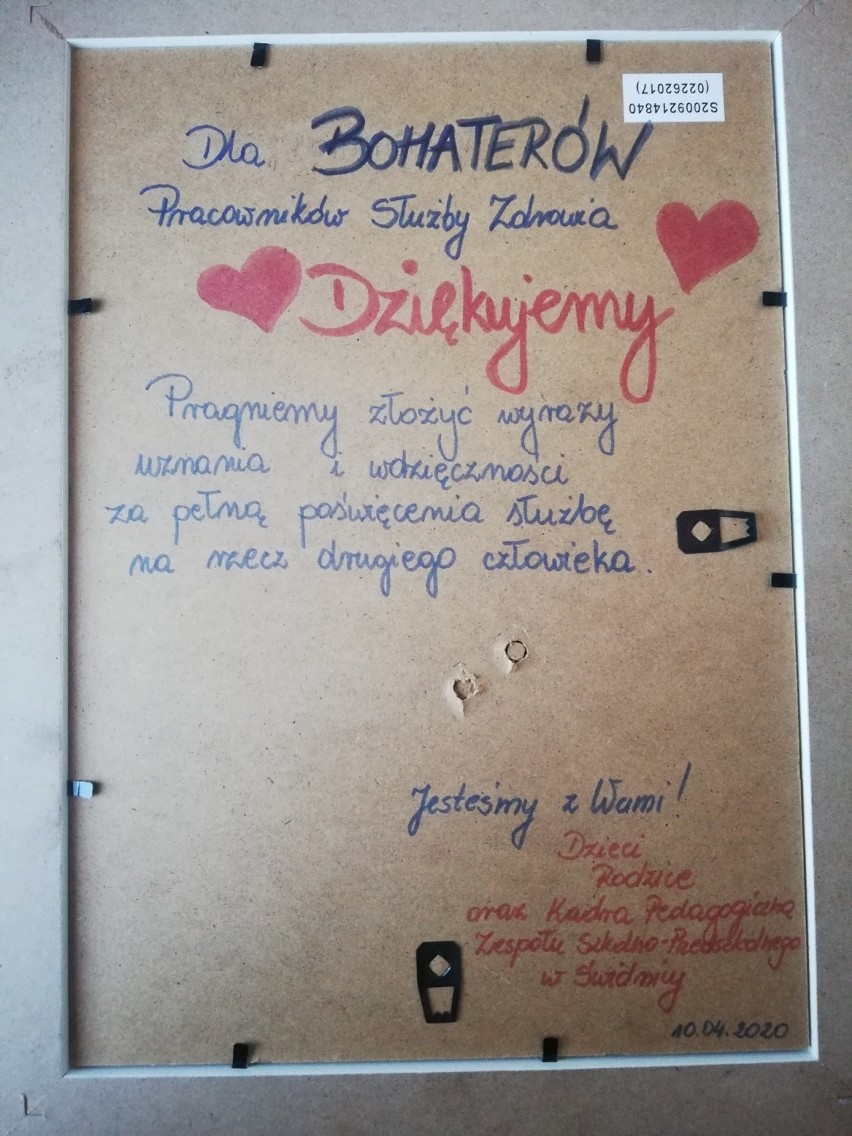 S2009214840
(02262017)
Dla BOHATERÓW
Pracowników Służby Zdrowia
Dziękujemy
Pragniemy złożyć wyrazy
uznania i wdzięczności
za pełną poświęcenia służbę
na rzecz drugiego człowieka.
Jesteśmy z Wami!
Dzieci
Rodzice
oraz Kadra Pedagogiczna
Zespołu Szkolno-Przedszkolnego
w Świdnicy
10.04.2020